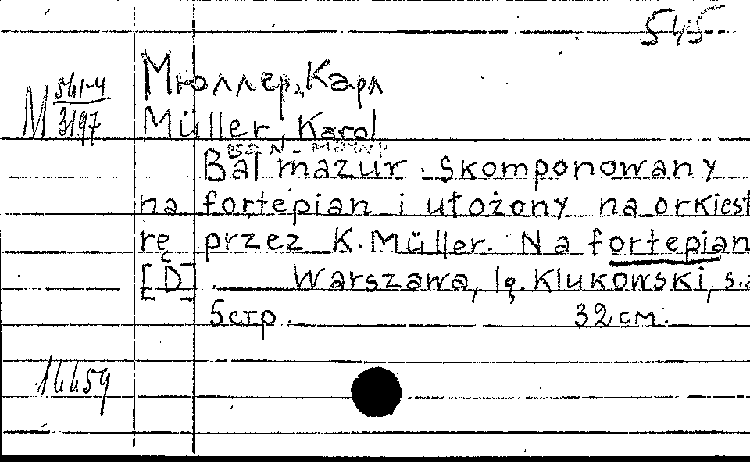 545
М 561-4
3197
Мюллер, Карл
Müller, Karol
Bal mazur skomponowany
na fortepian i ułożony na orkiest
rę przez K. Müller. Na fortepian
[D]. Warszawa, Ig. Klukowski, s.a
5 стр. 32 см.
16659